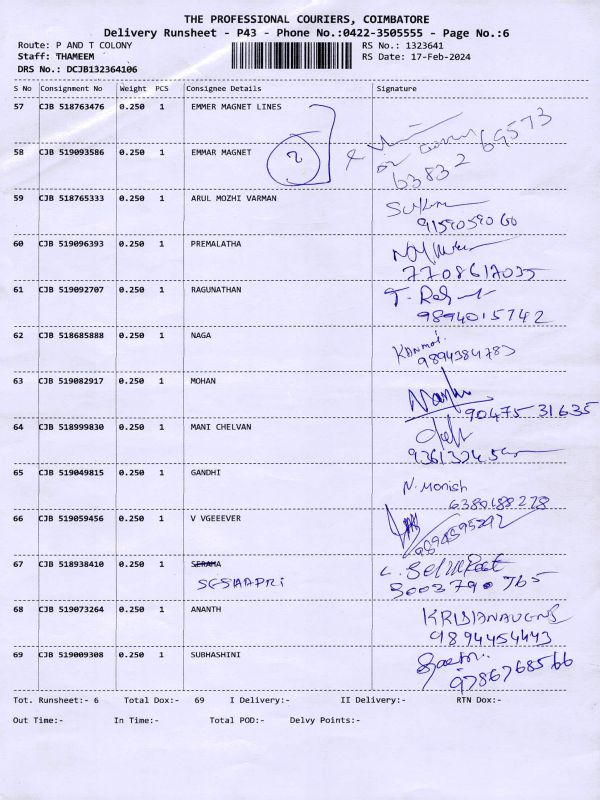 THE PROFESSIONAL COURIERS, COIMBATORE
Delivery Runsheet - P43 - Phone No.:0422-3505555 - Page No.:6
Route: P AND T COLONY RS No.: 1323641
Staff: THAMEEM RS Date: 17-Feb-2024
DRS No.: DCJB132364106
S No Consignment No Weight PCS Consignee Details Signature
57 CJB 518763476 0.250 1 EMMER MAGNET LINES
69573
58 CJB 519093586 0.250 1 EMMAR MAGNET 2
63832
59 CJB 518765333 0.250 1 ARUL MOZHI VARMAN
9159059060
60 CJB 519096393 0.250 1 PREMALATHA
7708617035
61 CJB 519092707 0.250 1 RAGUNATHAN
9894015742
62 CJB 518685888 0.250 1 NAGA
9894384783
63 CJB 519082917 0.250 1 MOHAN
90475 31635
64 CJB 518999830 0.250 1 MANI CHELVAN
65 CJB 519049815 0.250 1 GANDHI N. Monish
6380188278
66 CJB 519059456 0.250 1 V VGEEEVER
9894595292
67 CJB 518938410 0.250 1 SERAMA
68 CJB 519073264 0.250 1 ANANTH
9894454443
69 CJB 519009308 0.250 1 SUBHASHINI
9786768566
Tot. Runsheet:- 6 Total Dox:- 69 I Delivery:- II Delivery:- RTN Dox:-
Out Time:- In Time:- Total POD:- Delvy Points:-